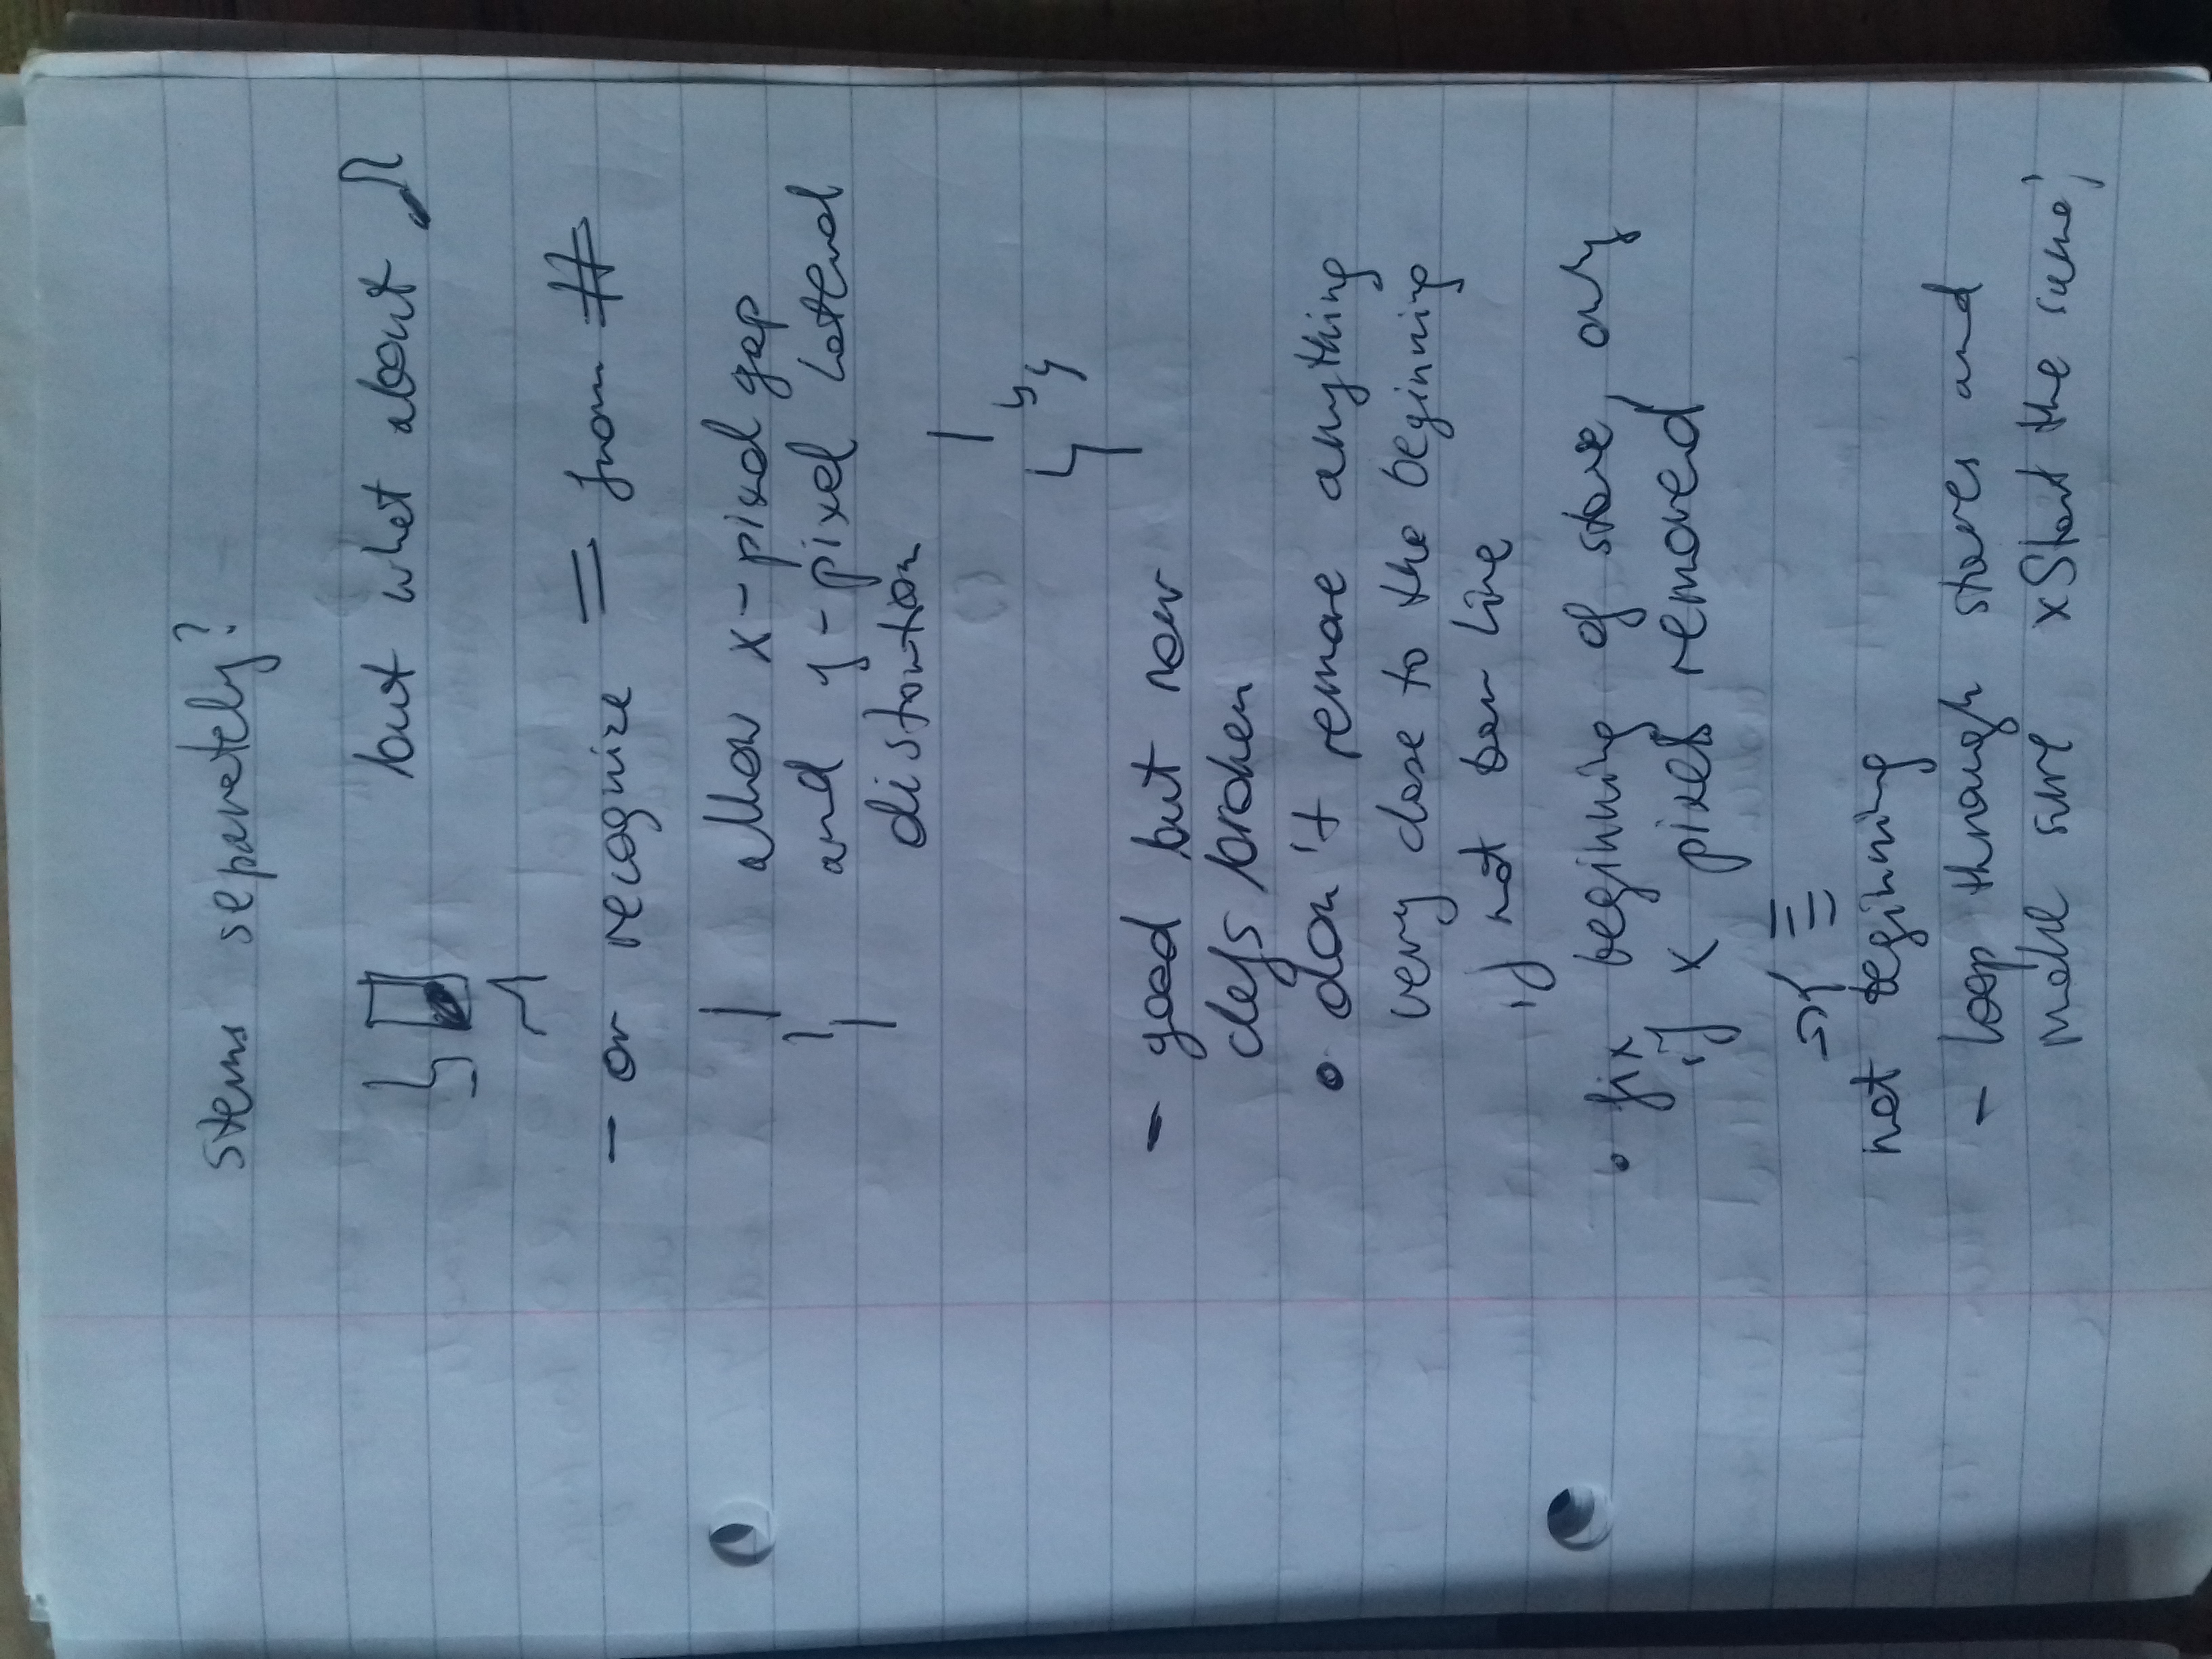 stems separately?
but what about
- or recognize = from #
allow x-pixel gap
and y-pixel lateral
distortion
- good but now
clefs broken
• don't remove anything
very close to the beginning
if not bar line
• fix beginning of stave, only
if x pixels removed
not beginning
- loop through staves and
make sure xStart the same;